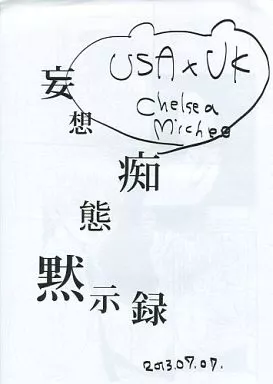 USA × UK
Chelsea
Mirchee
妄想
痴態
黙示録
2013.07.07.